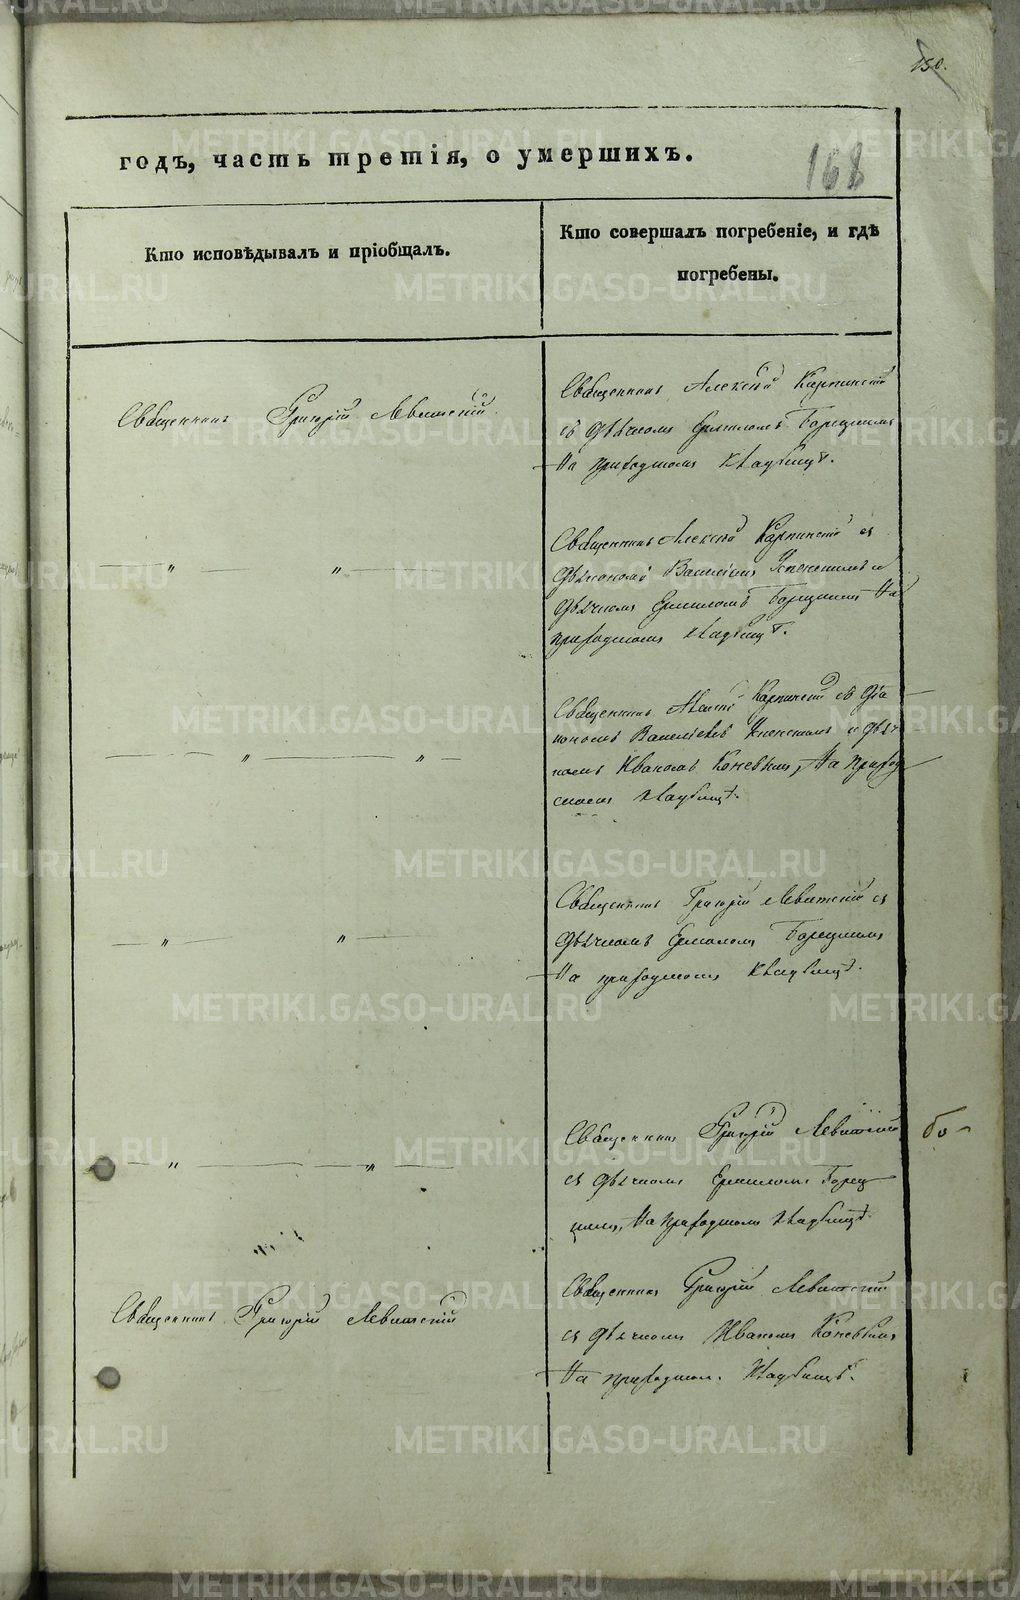 150.
годъ, часть третія, о умершихъ.
168
Кто исповѣдывалъ и пріобщалъ.
Кто совершалъ погребеніе, и гдѣ
погребены.
Священникъ Григорій Левитскій.
Священникъ Алексѣй Карпинскій
съ дьячкомъ Ермиломъ Борецкимъ
На приходскомъ кладбищѣ.
— " — " —
Священникъ Алексѣй Карпинскій съ
Дьякономъ Василіемъ Успенскимъ и
дьячкомъ Ермиломъ Борецкимъ На
приходскомъ кладбищѣ.
— " — " —
Священникъ Алексѣй Карпинскій съ Діа
кономъ Василіемъ Успенскимъ и дьяч
комъ Иваномъ Коневымъ, На приход
скомъ кладбищѣ.
— " — " —
Священникъ Григорій Левитскій съ
дьячкомъ Ермиломъ Борецкимъ
На приходскомъ кладбищѣ.
— " — " —
Священникъ Григорій Левитскій
съ дьячкомъ Ермиломъ Борец
кимъ, На приходскомъ кладбищѣ.
Священникъ Григорій Левитскій
Священникъ Григорій Левитскій
съ дьячкомъ Иваномъ Коневымъ
На приходском. Кладбищѣ.
METRIKI.GASO-URAL.RU